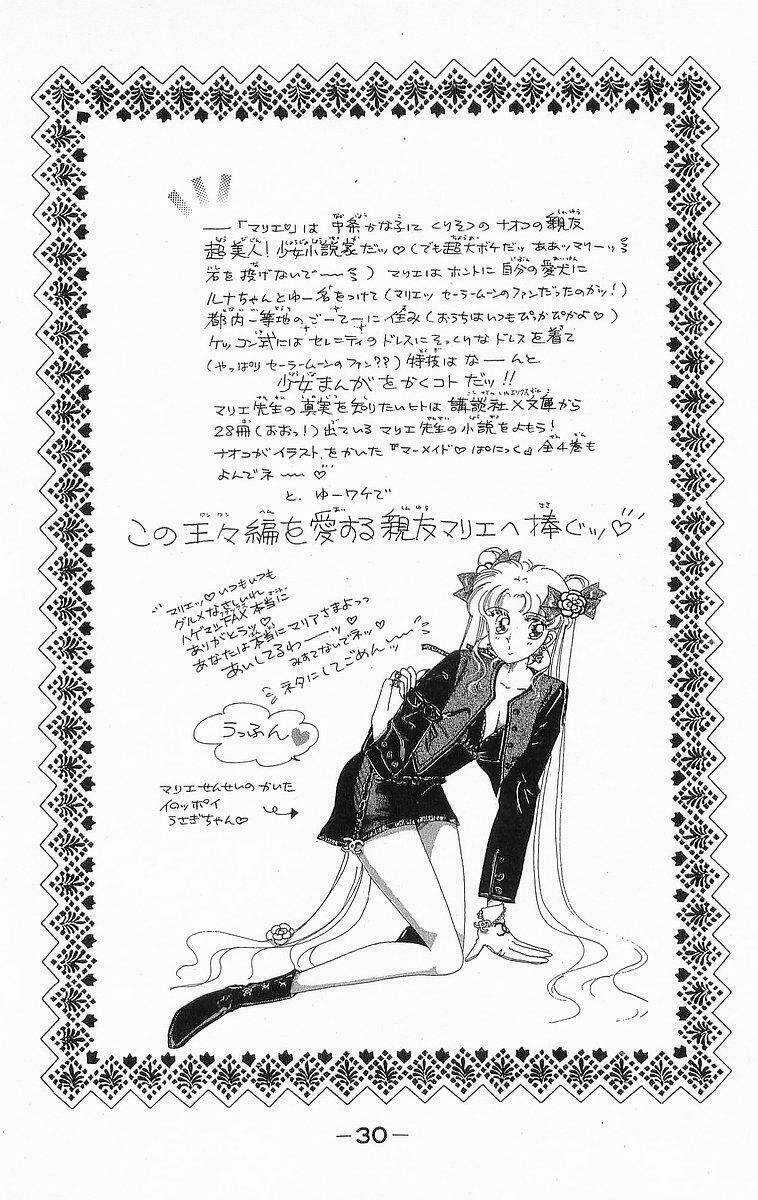 ──『マリエ』は 中条かな子に くりそつの ナオコの親友
超美人!少女小説家だッ♡(でも超大ボケだッ ああッマリーッ
岩を投げないで〜〜) マリエは、ホントに 自分の愛犬に
ルナちゃんとゆー名をつけて(マリエッ セーラームーンのファンだったのかッ!)
都内一等地のごーてーに 住み(おうちはいつもぴかぴかよ♡)
ケッコン式には セレニティのドレスにそっくりな ドレスを着て
(やっぱり セーラームーンのファン??)特技は なーんと
少女まんがをかくコトだッ!!
マリエ先生の真実を知りたいヒトは 講談社X文庫から
28冊(おおっ!)出ている マリエ先生の小説をよもう!
ナオコがイラストをかいた『マーメイド♡ぱにっく』全4巻も
よんでネ〜〜♡
と、ゆーワケで
この王々編を愛する親友マリエへ捧ぐッ♡
マリエッ♡いつもいつも
グルメなさしいれ
ハゲマシFAX 本当に
ありがとうッ♡
あなたは本当にマリアさまよっっ
あいしてるわーーッ♡
みすてないでネッ♡
ネタにしてごめんッ
うっふん♥
マリエせんせいの かいた
イロッポイ
うさぎちゃん♡
－30－